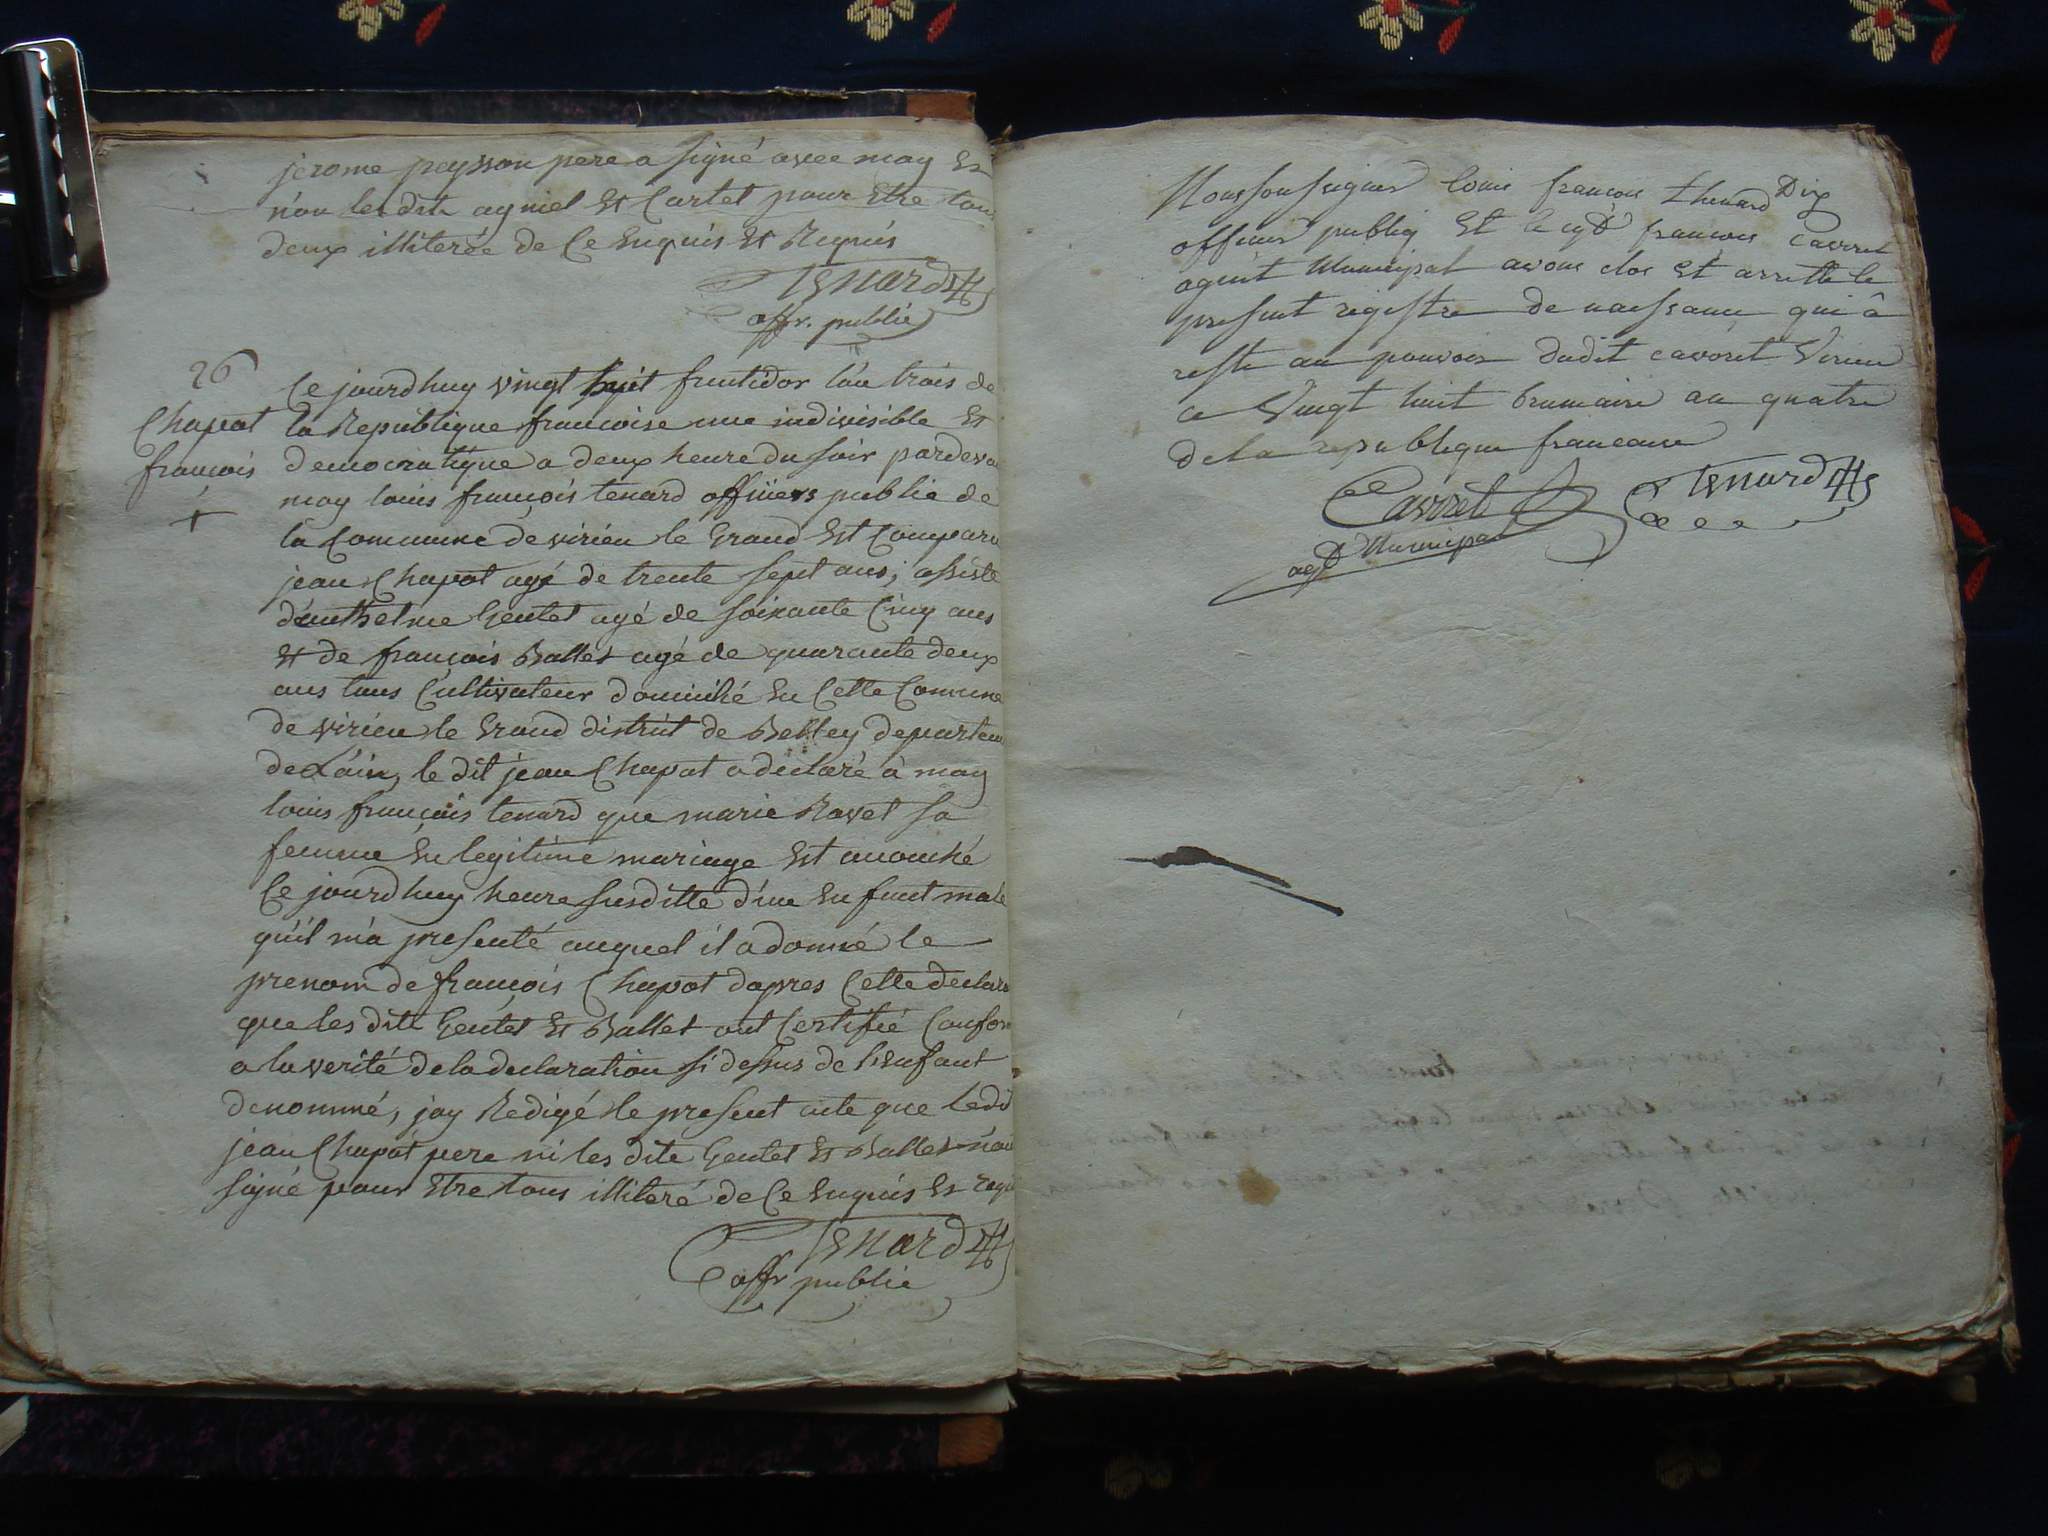 jerome peysson pere a signé avec moy Et
non les dits agniel Et Cartet pour Etre tou
deux illiterée de Ce Enquis Et Requis
Tenard
offr. public
26
Chapot
françois
Ce jourdhuy vingt huit fruitidor l'án trois de
la Republique francoise une indivisible Et
democratique a deux heure du soir pardeva
moy louis françois tenard officiers public de
la Commune de virieu le Grand Est Comparu
jean Chapot agé de trente sept ans, assisté
d'enthelme Gentet agé de soixante Cinq ans
Et de françois Ballet agé de quarante deux
ans tous Cultivateur domicilié En Cette Comune
de virieu le Grand district de Belley departem
de L'áin, le dit jean Chapot a declaré à moy
louis françois tenard que marie Ravet sa
femme En legitime mariage Est acouché
Ce jourdhuy heure susditte d'un Enfant male
qu'il m'a presenté auquel il a donné le
prenom de françois Chapot dapres Cette declara
que les dits Gentet Et Ballet ont Certifié Confor
a la verité de la declaration si dessus de l'Enfant
denommé, jay Redigé le present acte que ledi
jean Chapot pere ni les dits Gentet Et Ballet n'on
signé pour Etre tous illiteré de Ce Enquis Et requ
Tenard
offr public
Nous soussignes louis francois thenard
officier public Et le cyt francois cavoret
agent Municipal avons clos Et arretté le
present registre de naissance qui à
resté au pouvoir dudit cavoret Virieu
ce Vingt huit brumaire an quatre
de la republique francaise
Cavoret Tenard
agt Municipal